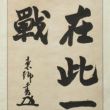 在此一
戰
東郷書